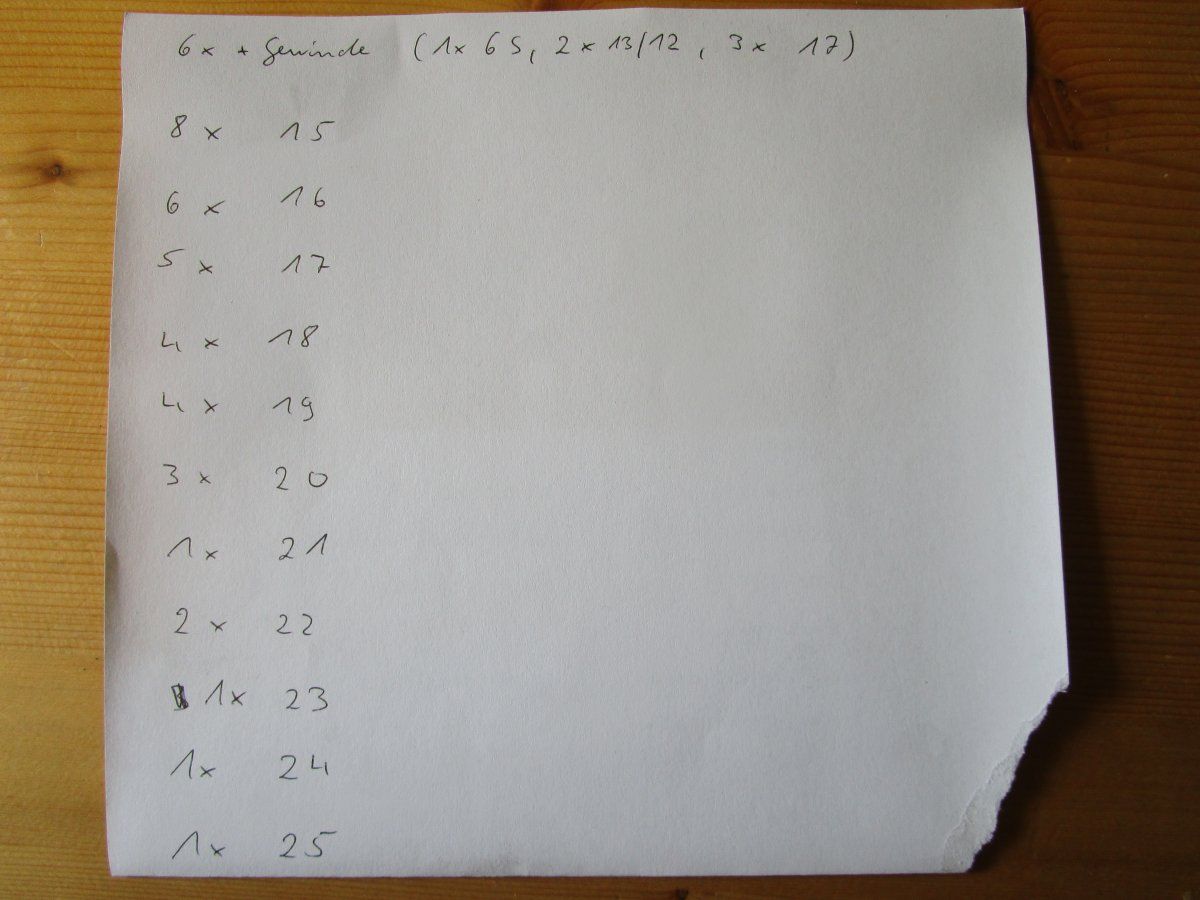 6x + Gewinde (1x 65, 2x 13/12, 3x 17)
8x 15
6x 16
5x 17
4x 18
4x 19
3x 20
1x 21
2x 22
1x 23
1x 24
1x 25